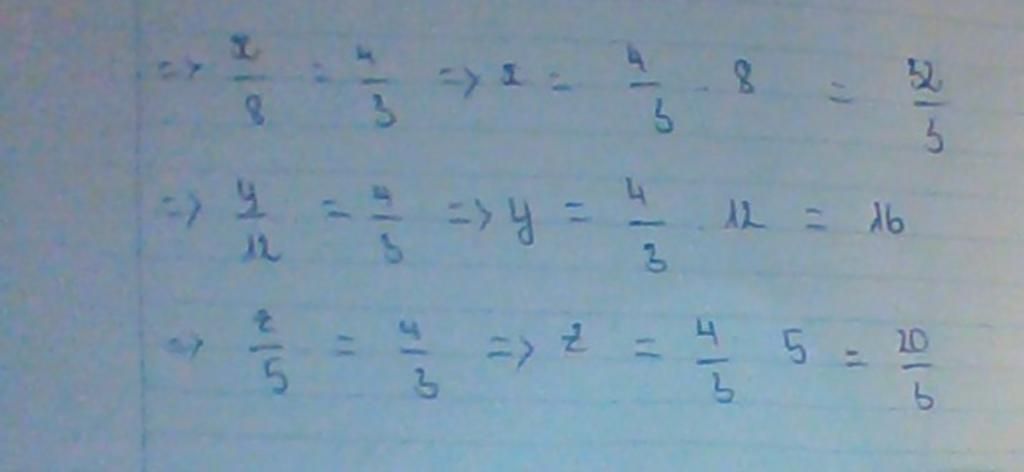 => x/8 = 4/3 => x = 4/3 . 8 = 32/3
=> y/12 = 4/3 => y = 4/3 . 12 = 16
=> z/5 = 4/3 => z = 4/3 5 = 20/3